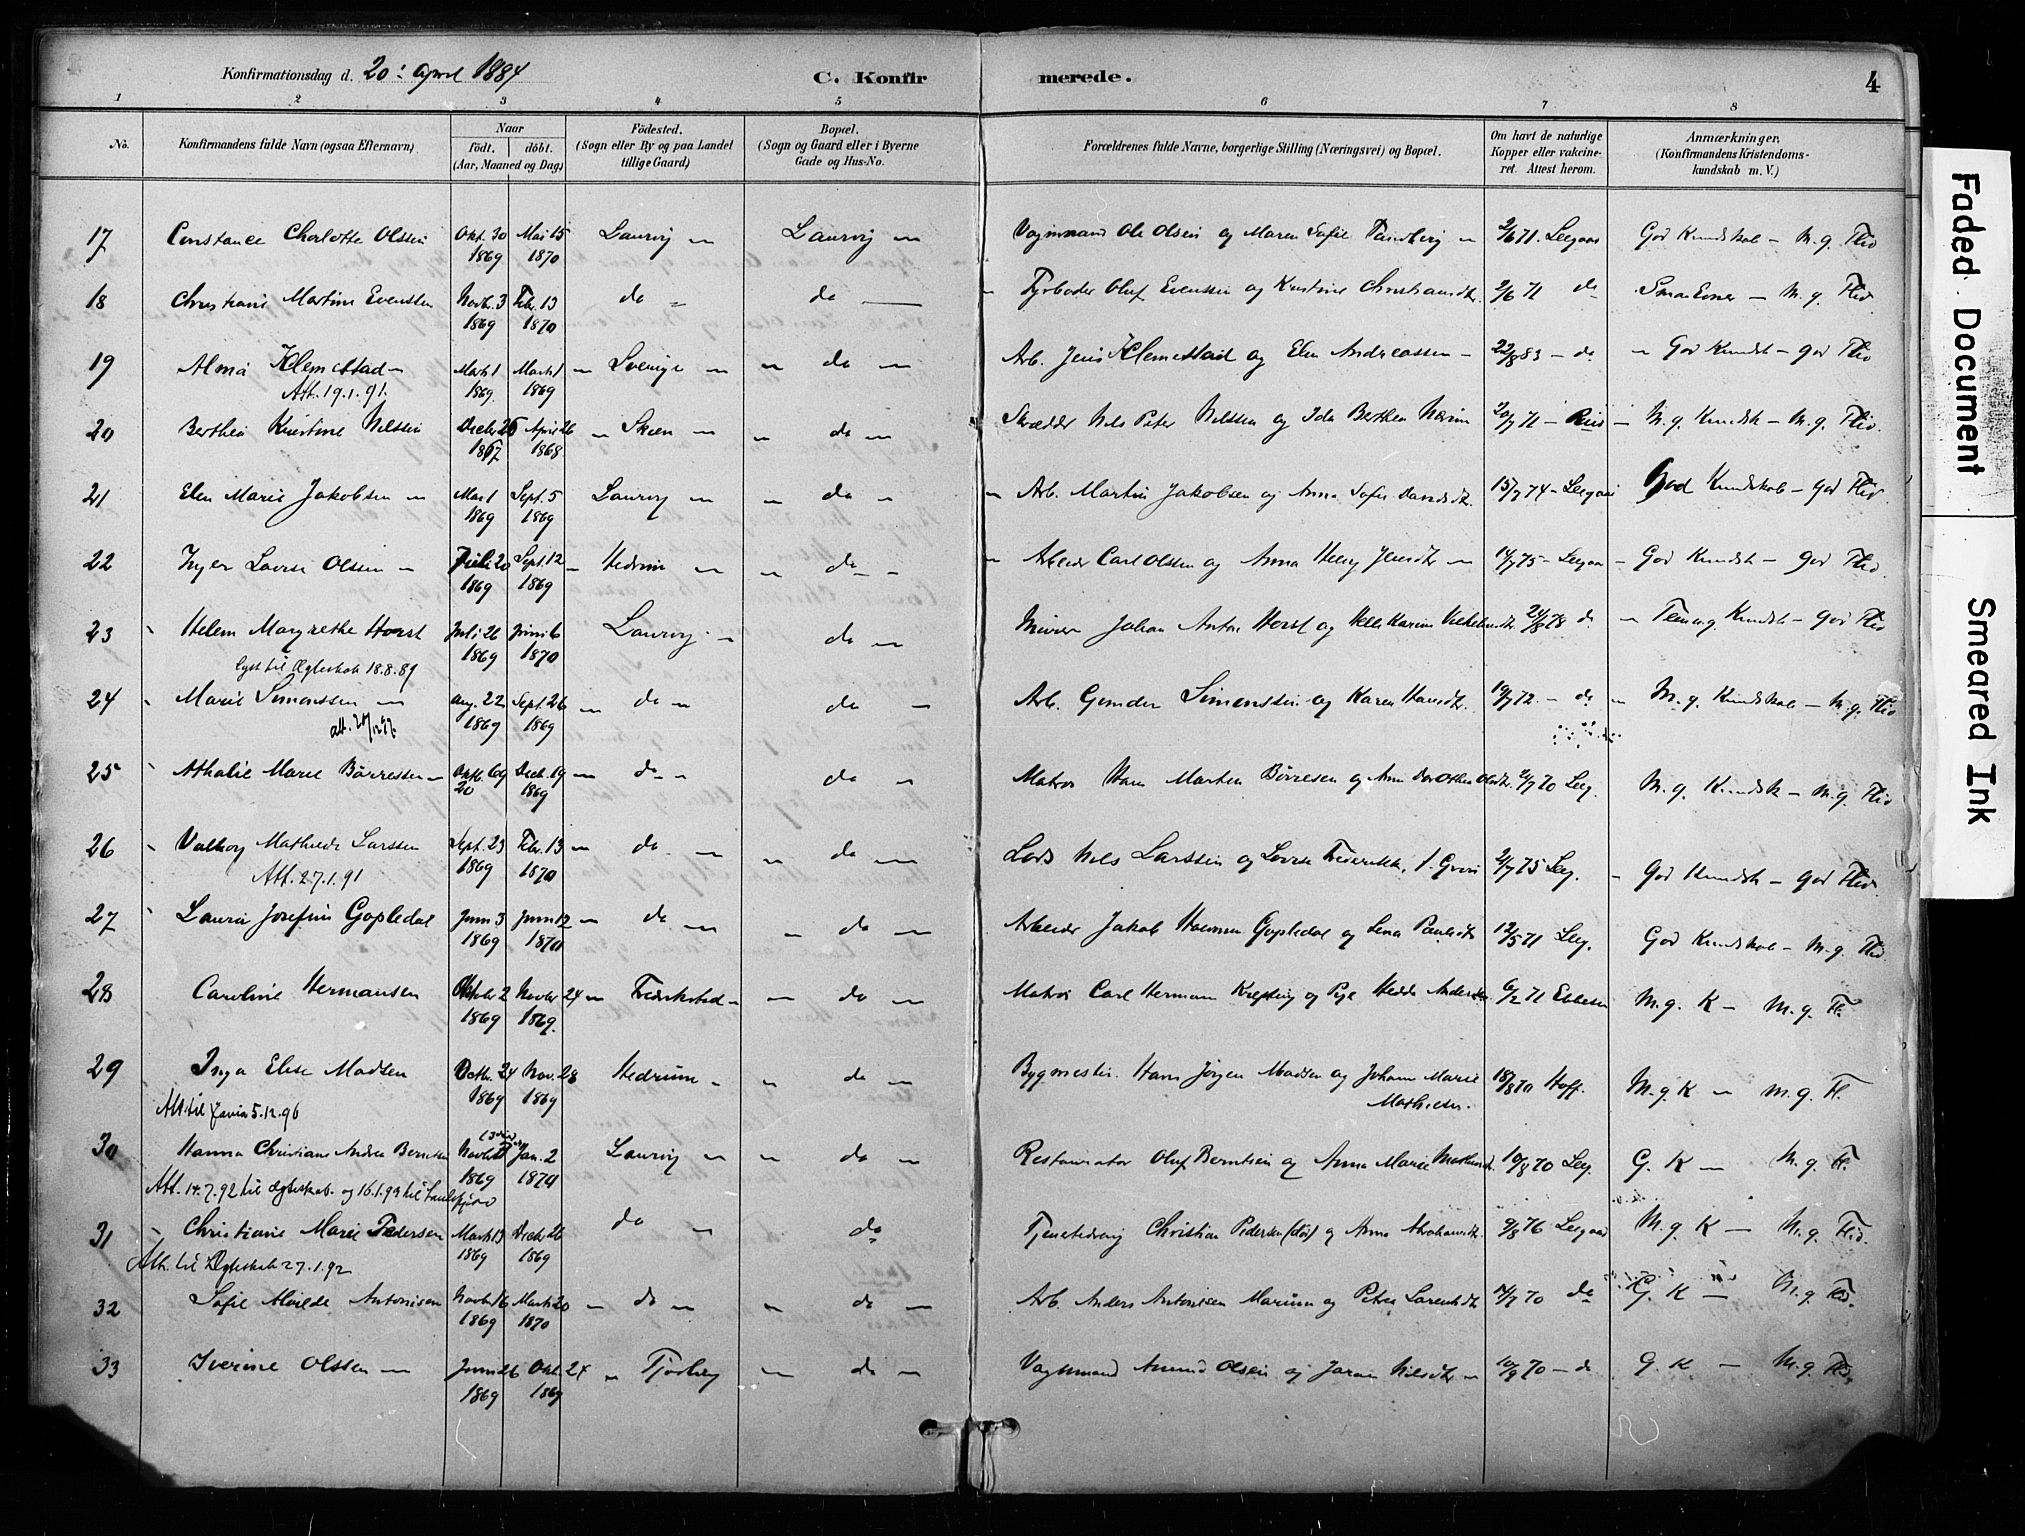 Konfirmationsdag d. 20: April 1884 C. Konfirmerede. 4
1 2 3 4 5 6 7 8
No. Konfirmandens fulde Navn (ogsaa Efternavn) Naar født. døbt. (Aar, Maaned og Dag) Födested. (Sogn eller By og paa Landet tillige Gaard) Bopæl. (Sogn og Gaard eller i Byerne Gade og Hus-No. Forældrenes fulde Navne, borgerlige Stilling (Næringsvei) og Bopæl. Om havt de naturlige Kopper eller vakcineret. Attest herom. Anmærkninger. (Konfirmandens Kristendomskundskab m. V.)
17 Constance Charlotte Olsen Okt. 30 1869 Mai 15 1870 Laurvig Laurvig Vognmand Ole Olsen og Maren Sofie 2/6 71. God Kundskab – M. g. Flid
18 Christiane Martine Evensen Novb. 3 1869 Febr. 13 1870 do do Fyrbøder Oluf Evensen og Kristine 2/6 71 do – M. g. Flid
19 Alma Klemetstad Marts 1 1869 Marts 1 1869 Sverige do Arb. Jens Klemetstad og Elen Andreassen 22/8 83 – do God Kundsk – god Flid
Att. 19.1.91.
20 Berthea Kristine Nilsen Decbr 26 1867 April 26 1868 Skien do Skrædder Nils Peter Nilsen og Ida Berthea 20/7 71 – Riis M. g. Kundsk – M. g. Flid.
21 Elen Marie Jakobsen Mai 1 1869 Sept. 5 1869 Laurvig do Arb. Martin Jakobsen og Anna Sofie 15/7 74 God Kundskab – god Flid
22 Inger Lovise Olsen Juli 20 1869 Sept. 12 1869 Hedrum do Arbeider Carl Olsen og Anna 14/7 75 God Kundsk – god Flid
23 Helene Margrethe Horst Juli 26 1869 Juni 6 1870 Laurvig do Murer Johan Anton Horst og 24/8 78 do Temmg. Kundsk – god Flid
lyst til Ægteskab 18.8.89
24 Marie Simonsen Aug. 22 1869 Sept. 26 1869 do do Arb. Simensen og Karen Hansdtr. 19/7 72. – do M. g. Kundskab – M. g. Flid
25 Athalie Marie Børresen Oktb. 69 20 Decb. 19 1869 do do Matros Hans Morten Børresen og 2/7 70 M. g. Kundsk – M. g. Flid
26 Valborg Mathilde Larsen Sept. 23 1869 Febr. 13 1870 do do Lods Nils Larsen og Lovise 2/7 75 God Kundsk – god Flid
Att. 27.1.91
27 Laura Josefine Gopledal Juni 3 1869 Juni 12 1870 do do Arbeider Jakob Gopledal og Lena 12/5 71 God Kundskab – M. g. Flid.
28 Caroline Hermansen Oktober 2 1869 Novbr 24 1869. do Matros Carl Herman 6/2 71 Ebbesen M. g. K – M. g. Fl.
29 Inga Elise Madsen Octb. 24 1869 Nov. 28 1869 Hedrum do Bygmester Hans Jørgen Madsen og Johanne Marie Mathiesen. 18/8 70 Hoff. M. g. K – m. g. Fl.
5.12.96
30 Hanna Christiane Andrea Berntsen 1869 Jan. 2 Laurvig do Restaurator Oluf Berntsen og Anna Marie 10/8 70 G. K – M. g. Fl.
Att. 14.7.92 til Ægteskab. og til
31 Christiane Marie Pedersen Marts 13 1869 Decbr 26 1869 do do Christian Pedersen (død) og Anna 9/8 76 M. g. K – M. g. Flid.
Att. til Ægteskab 27.1.92
32 Sofie Alvilde Antonisen Novbr 16 1869 Marts 20 1870 do do Arb. Anders Antonisen og Petra 70 do G. K – M. g. Flid.
33 Iverine Olsen Juni 26 1869 Okt. 24 1869 Tjodling do Vognmand Amund Olsen og 10/9 70 – do G. K – M. g. Flid.
Faded Document
Smeared Ink